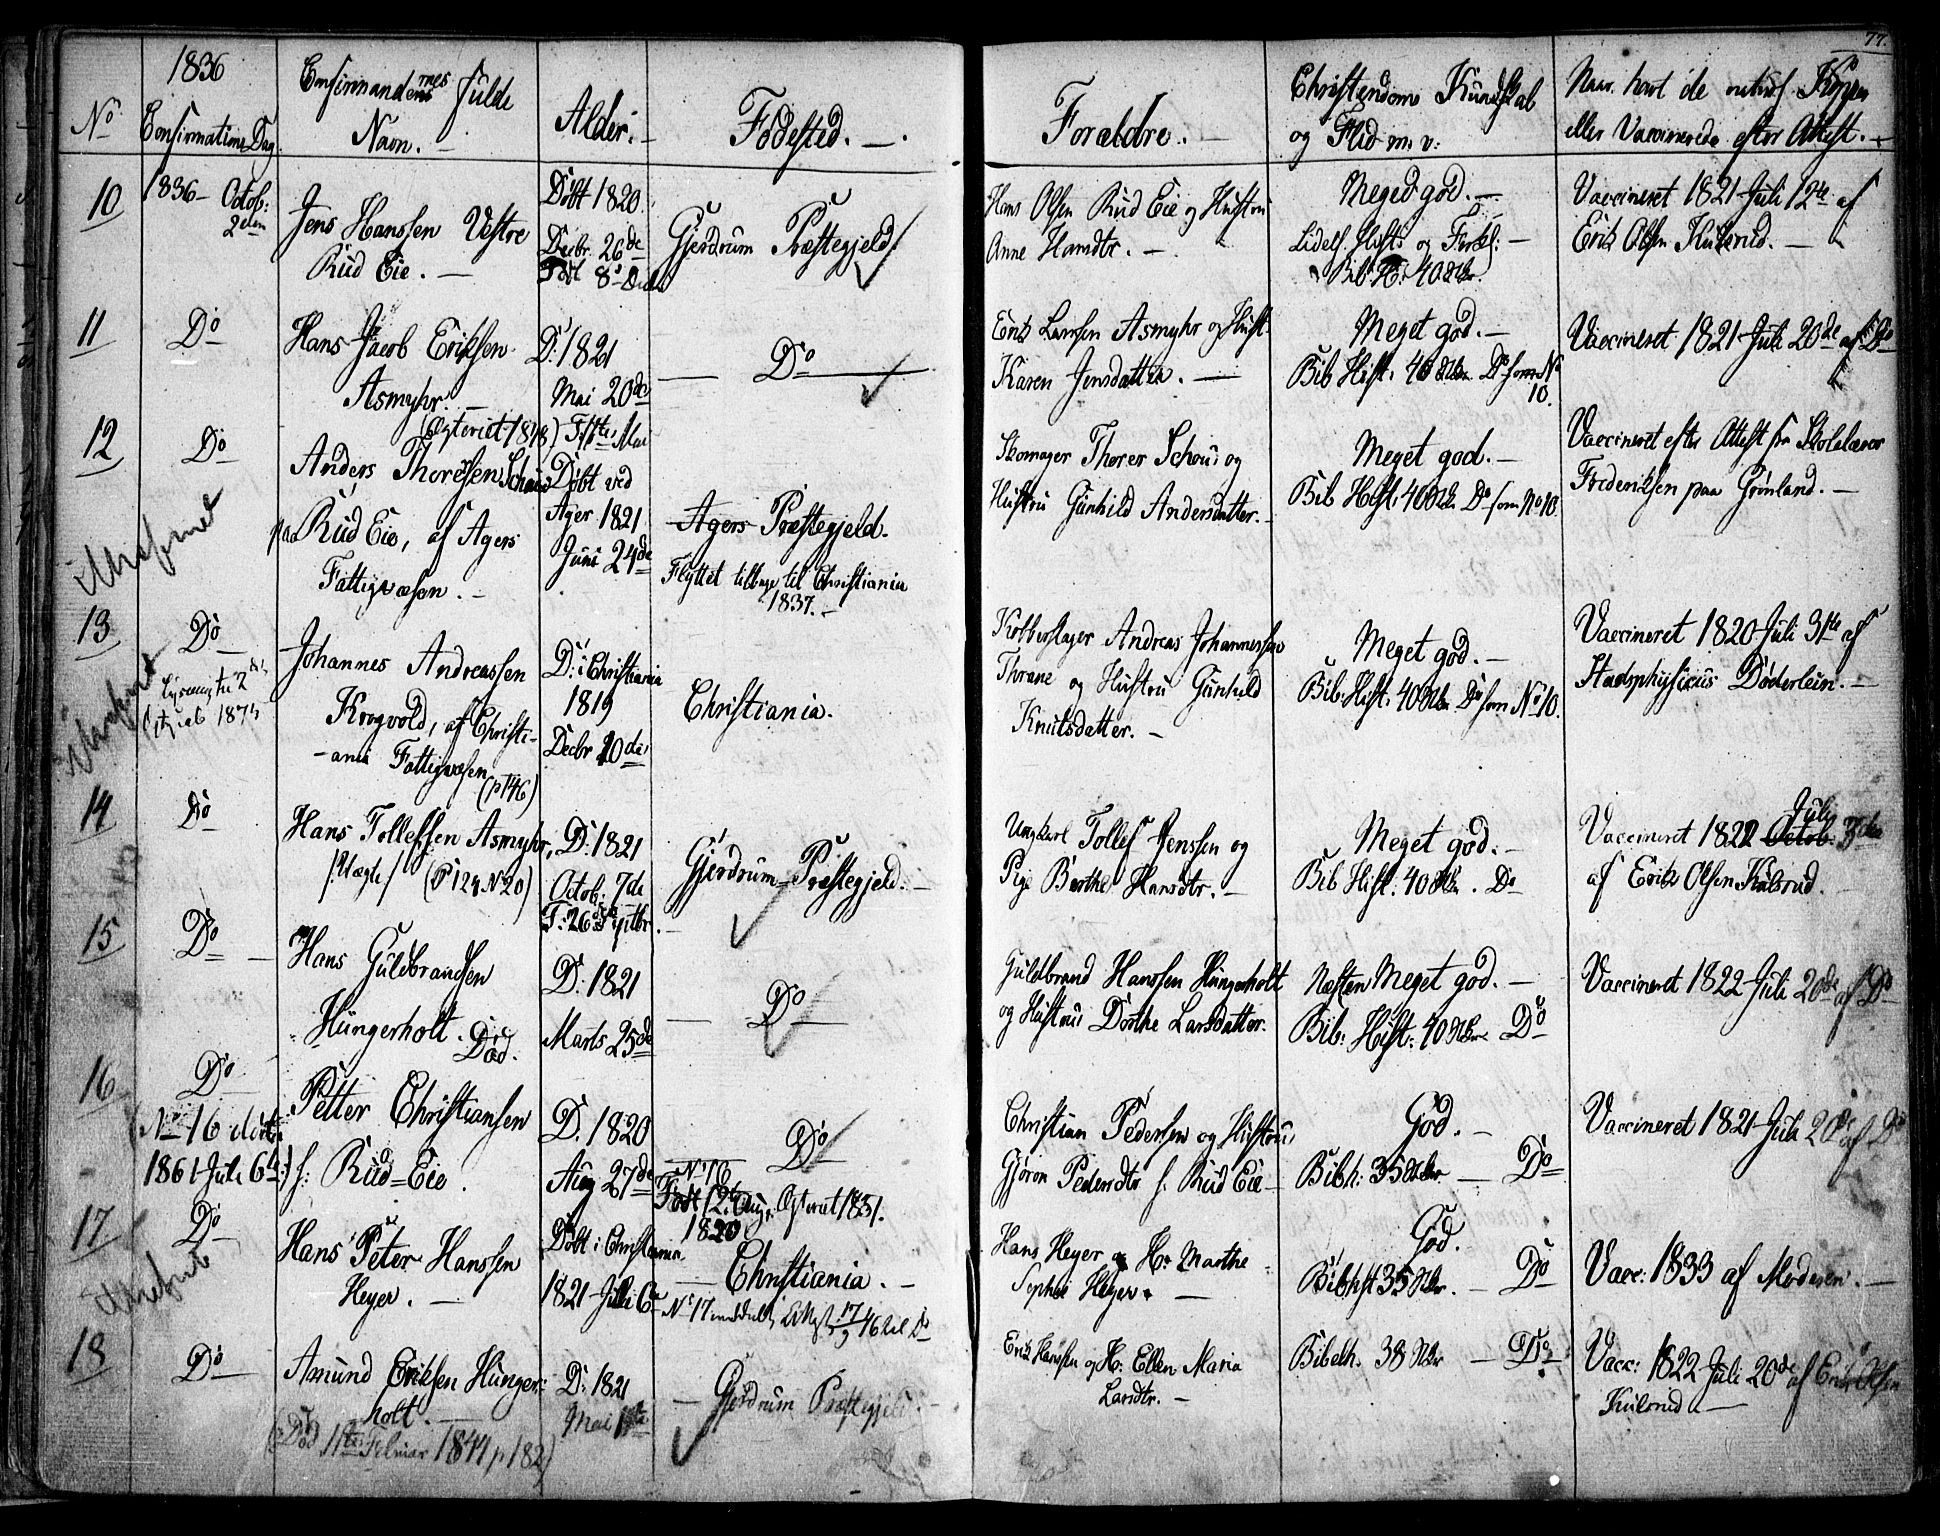 77.
1836
No
Confirmations Dag.
Confirmandernes fulde
Navn. —
Alder. —
Fødested. —
Forældre. —
Christendoms Kundskab
og Flid m. v:
Naar havt de naturl. Kopper
eller Vaccinerede efter Attest. —
10
1836 — Octob:
2den
Jens Hanssen Vestre
Rud Eie. —
Døbt 1820
Decbr. 26de
Født 8de
Gjerdrum Præstegjeld.
Hans Olsen Rud Eie og Hustru
Anne Hansdtr. —
Meged god. —
Bib. H: 40
Vaccineret 1821 Juli 12te af
Erik Olsen Kulsrud. —
11
Do
Hans Jacob Eriksen
Asmyhr. —
D. 1821
Mai 20de
F. 11te Mai
— Do —
Erik Larssen Asmyhr og Hust.
Karen Jensdatter. —
Meget god. —
Bib Hist. 40 Do som No
10.
Vaccineret 1821 Juli 20de af Do
12
Do
(Egteviet 1848)
Anders Thoresen Schou
paa Rud Eie, af Agers
Fattigvæsen. —
Døbt ved
Ager 1821
Juni 24de
Agers Præstegjeld.
Flyttet tilbage til Christiania
1837. —
Skomager Thorer Schou og
Hustru Gunhild Andersdatter. —
Meget god. —
Bib Hist. 40 Do som No 10.
Vaccineret efter Attest fra Skolelærer
Frederiksen paa Grønland. —
13
Do
1875
Johannes Andreassen
Krogvold, af Christi-
-ania Fattigvæsen
(p 146)
D: i Christiania
1819
Decbr 10de
Christiania.
Kobberslager Andreas Johannessen
Thrane og Hustru Gunhild
Knutsdatter. —
Meget god. —
Bib: Hist. 40 Do som No 10.
Vaccineret 1820 Juli 31te af
Stadsphysicus Døderlein. —
14
Do
Hans Tollefsen Asmyhr,
/:Uægte/ (P 124 No 20)
D: 1821
Octob: 7de
F: 26de Septbr.
Gjerdrum Præstegjeld. —
Ungkarl Tollef Jenssen og
Pige Berthe Hansdtr. —
Meget god. —
Bib Hist. 40 . Do
Juli
Vaccineret 1822 Octob. 3die
af Erik Olsen Kulsrud.
15
Do —
Hans Guldbrandsen
Hungerholt. Død.
D: 1821
Marts 25de
— Do —
Guldbrand Hanssen Hungerholt
og Hustru Dorthe Larsdatter.
Næsten Meget god. —
Bib: Hist: 40 Do
Vaccineret 1822 Juli 20de af Do
16
Do
No 16 død
1861 Juli 6te)
Petter Christiansen
f: Rud Eie.
D. 1820
Aug 27de
Do
No 16
Født 12te Aug: Egteviet 1851.
1820
Christian Pedersen og Hustru
Gjøron Pedersdtr f. Rud Eie —
God. —
Bibh: 35 — Do
Vaccineret 1821 Juli 20de af Do
17
Do
Hans Peter Hanssen
Heyer. —
Døbt i Christiania
1821 Juli 6te
— Christiania. —
No 17 17/9 46 til Do
Hans Heyer og H: Marthe
Sophie Heyer. —
God.
Bibhst 35 — Do
Vacc: 1833 af Mordesen. —
18
Do
Amund Eriksen Hunger-
holt. —
(Død 11te Februar 1844 p 182)
D: 1821
Mai 1te
— Gjerdrum Præstegjeld. —
Erik Hanssen og H: Ellen Maria
Larsdtr. —
Bibelh. 38 — Do
Vacc: 1822 Juli 20de af Erik Olsen
Kulsrud —